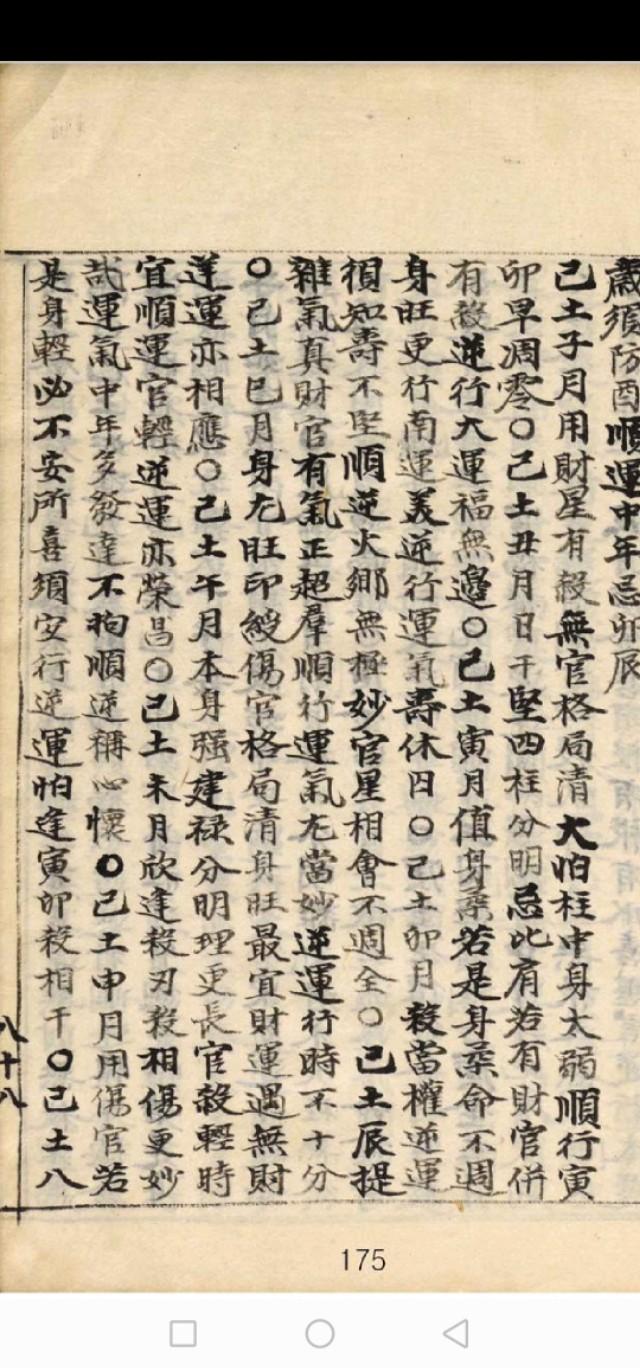 歲須防酉順運中年忌卯辰
己土子月用財星有殺無官格局清大怕柱中身太弱順行寅
卯早凋零〇己土丑月日干堅四柱分明忌比肩若有財官併
有殺逆行大運福無邊〇己土寅月值身柔若是身柔命不週
身旺更行南運美逆行運氣壽休囚〇己土卯月殺當權逆運
須知壽不堅順逆火鄉無極妙官星相會不週全〇己土辰提
雜氣真財官有氣正超羣順行運氣尤當妙逆運行時不十分
〇己土巳月身尤旺印綬傷官格局清身旺最宜財運遇無財
逆運亦相應〇己土午月本身强建禄分明理更長官殺輕時
宜順運官輕逆運亦榮昌〇己土未月欣逢殺刃殺相傷更妙
哉運氣中年多發達不拘順逆稱心懷〇己土申月用傷官若
是身輕必不安所喜須安行逆運怕逢寅卯殺相干〇己土八
八十八
175